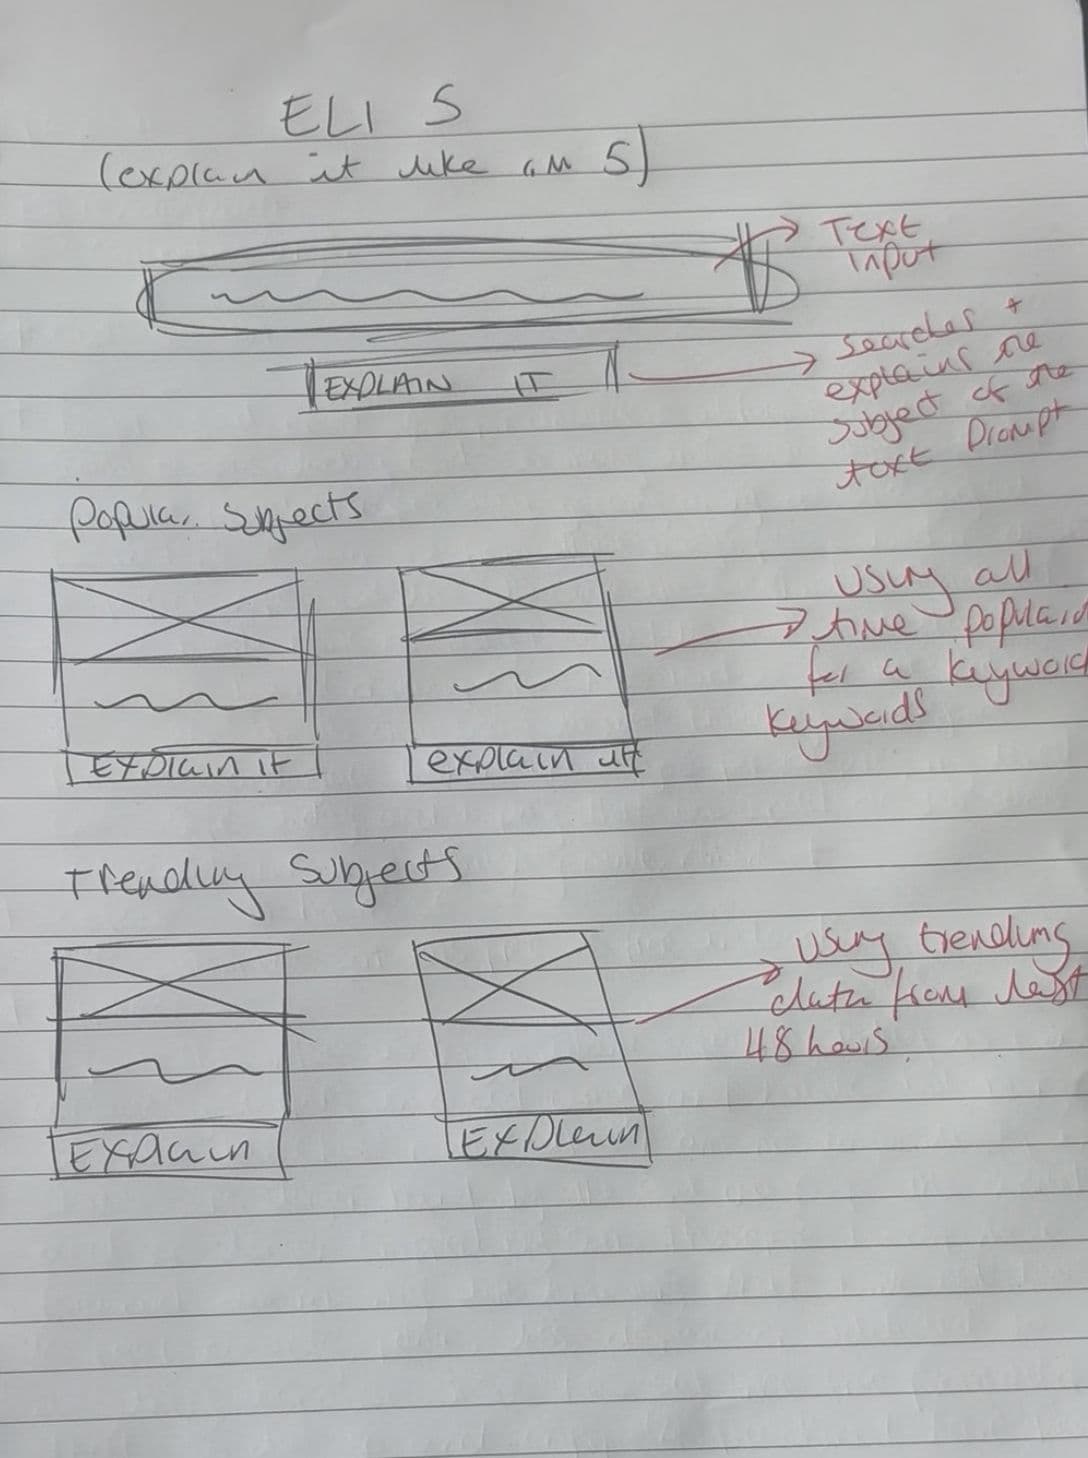 ELI 5
(explain it like am 5)
Text
input
EXPLAIN IT
searches +
explains the
subject of the
text prompt
Popular Subjects
using all
time popular
for a keyword
keywords
EXPlain it
explain it
Trending Subjects
using trending
data from last
48 hours.
EXPlain
EXPlain